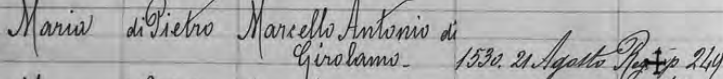 Maria di Pietro Marcello Antonio di
Girolamo. 1530. 21 Agosto Reg. p 249